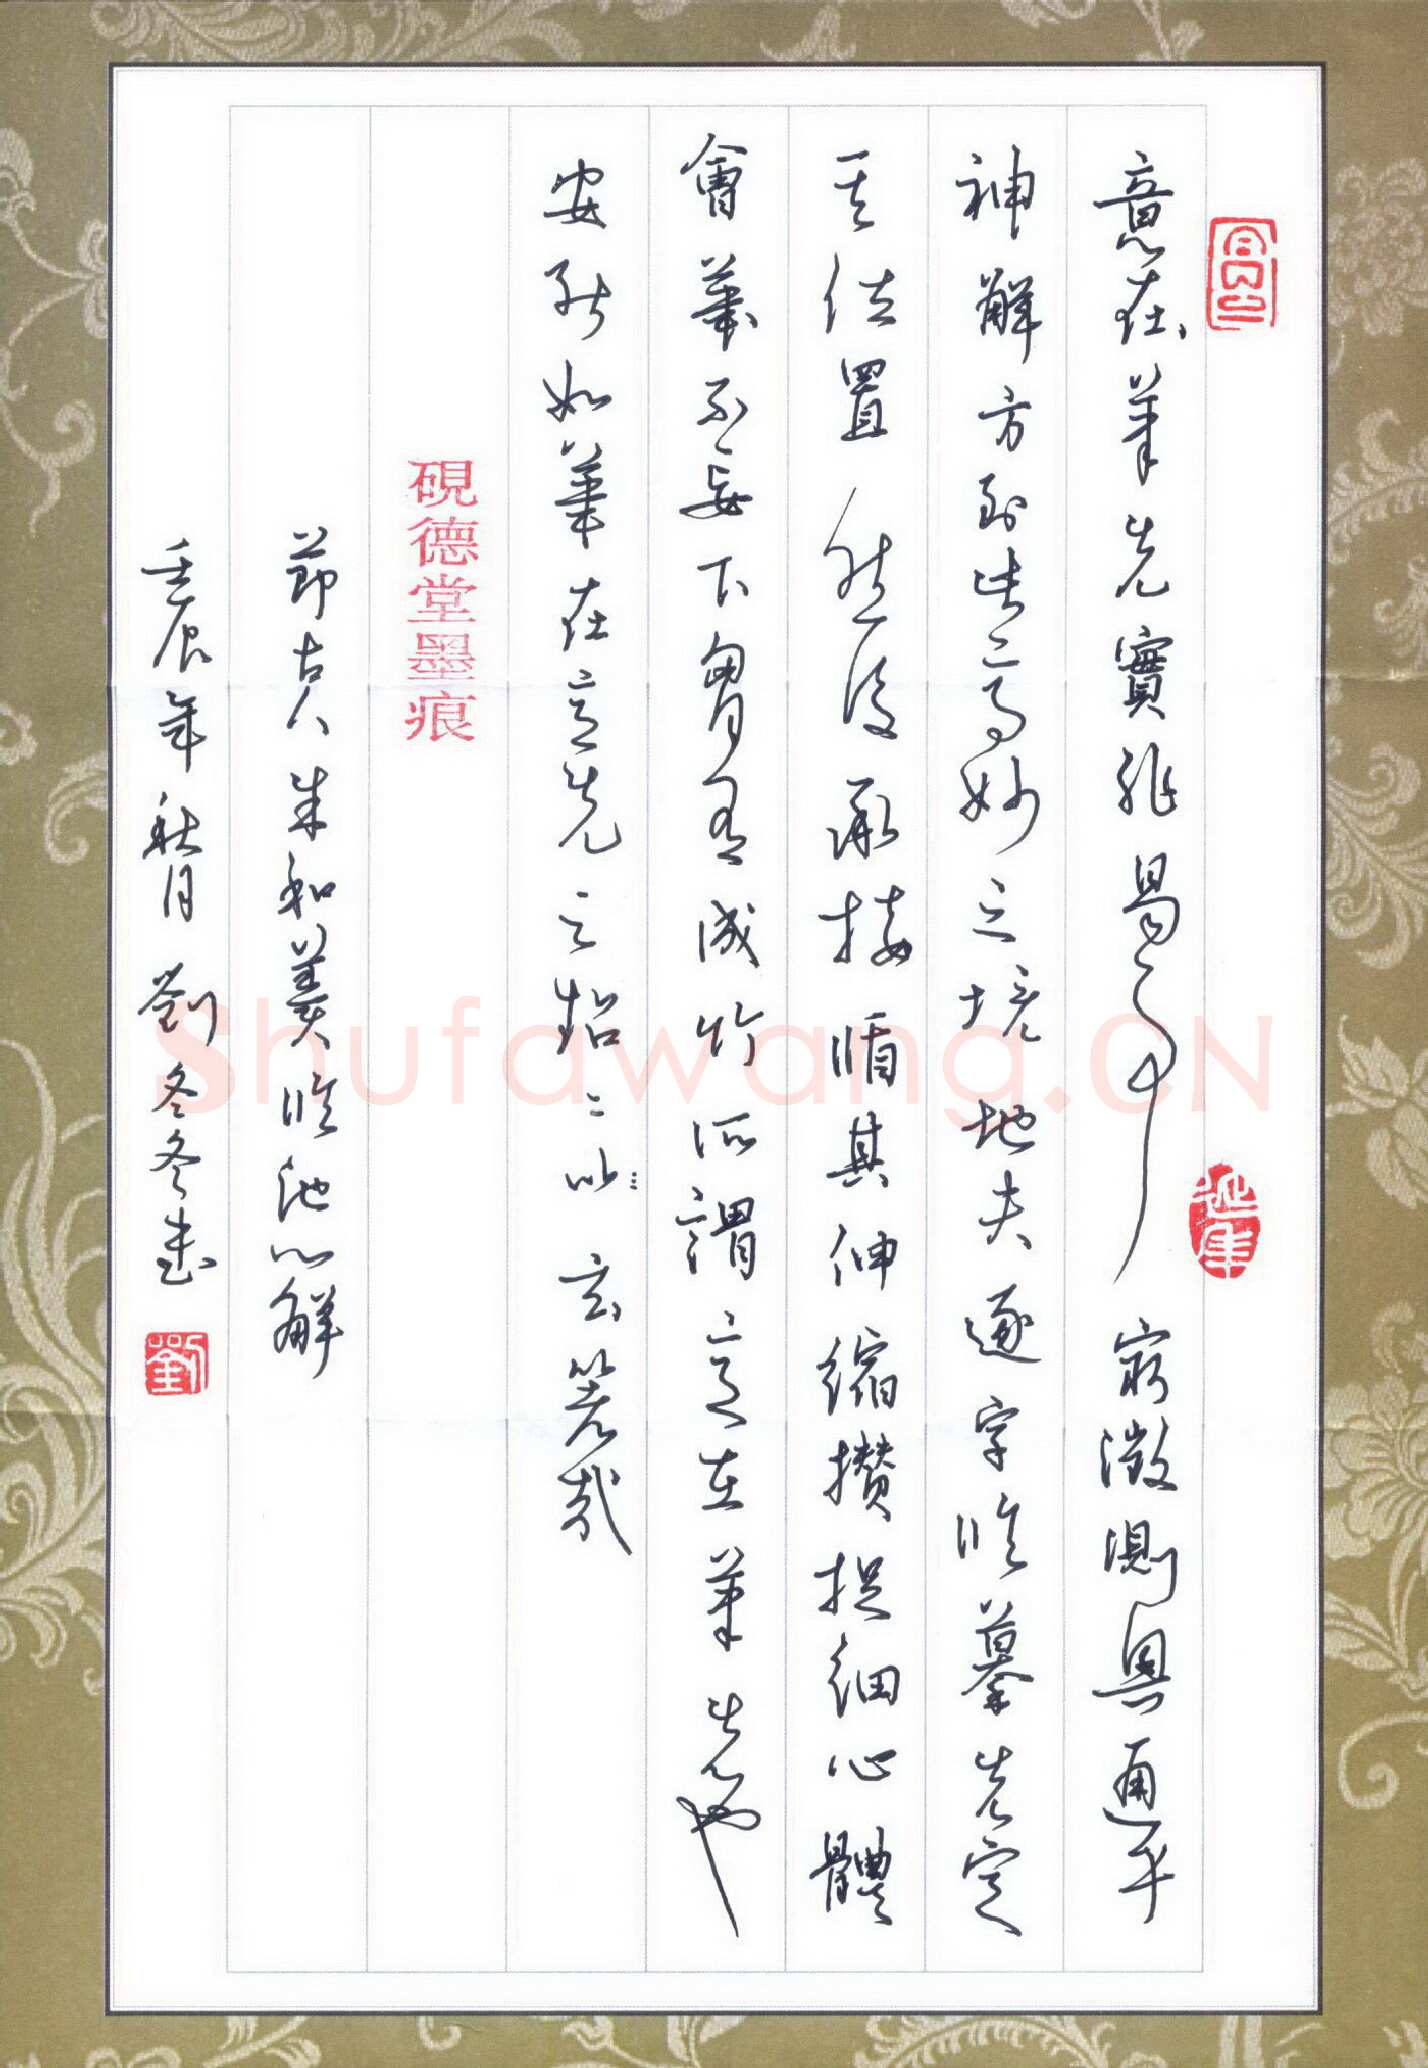 意在筆先實非易事窮微測奧通乎
神解方到此高妙之境地夫逐字臨摹先定
其位置然後承接循其伸縮攢捉細心體
會筆不妄下胸有成竹所謂意在筆先也
安能如筆在意先之超々以玄箸哉
硯德堂墨痕
節古人朱和羹臨池心解
壬辰年秋月劉冬冬書
劉
延年
Shufawang.CN